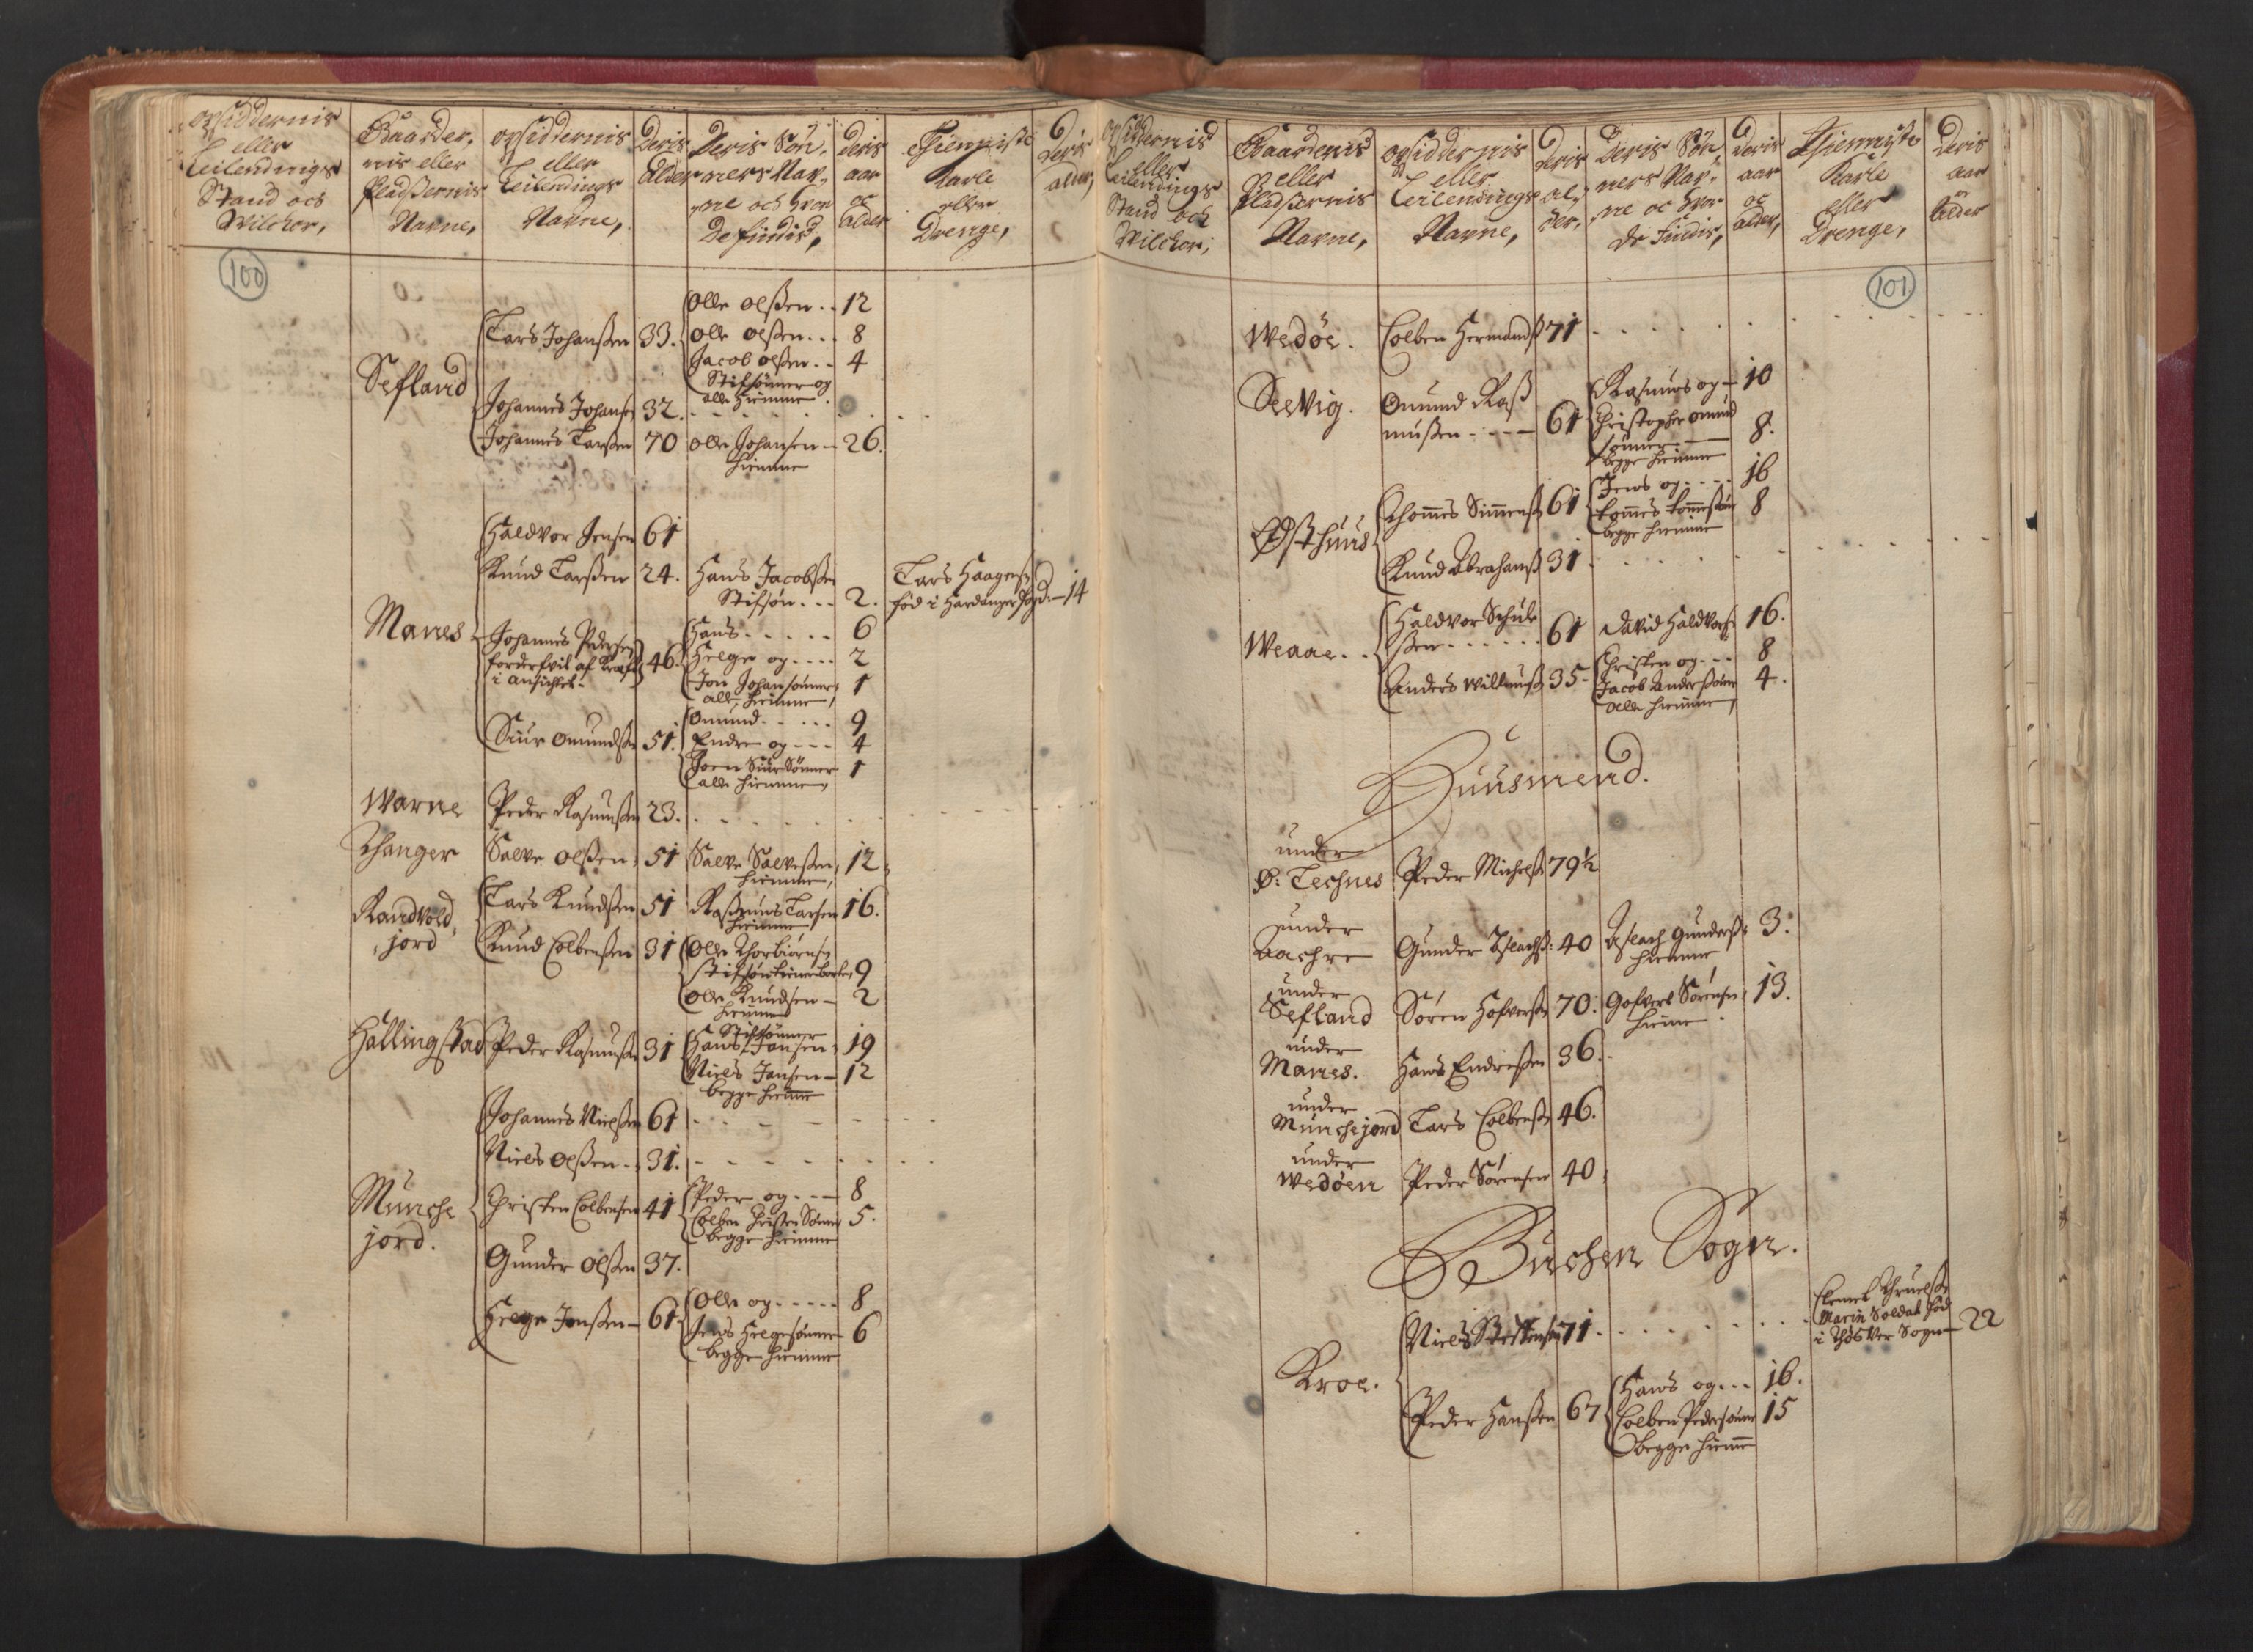 opsiddernis
eller
Leilendings
Stand och
Wilchor,
Gaarder,
nis eller
Pladßernis
Navne,
opsiddernis
eller
Leilendings
Navne,
Deris
Alder
Deris Søn,
ners Nav,
ne och hvor
De findis,
deris
aar
oc
alder
Tienniste
Karle
eller
Drenge,
Deris
alder,
100
Sefland
Lars Johanßen 33.
Olle olßen . . 12
olle olßen . . . 8
Jacob olßen . . 4
Stifsønner og
alle hiemme .
Johannes Johanß 32.
Johannes Larßen 70 olle Johansen – 26.
hiemme
Manes
Haldvor Jensen 61
Knud Larßen 24. Hans Jacobßen
Stifsøn . . . 2.
Lars Haagenß
fød i Hardanger 14
Johannes Pedersen
forderfvit af Kreft
i ansichtet.
46.
Hans . . . . . 6
Helge og . . . . 2
Jon Johansønner 1
alle hiemme,
Siur omundßen 51.
Omund . . . . . 9
Endre og – – – 4
Joen Siursønner 1
alle hiemme,
Warne Peder Rasmußen 23.
Thanger Salve olßen 51 Salve Salveßen, 12
hiemme,
Randvold,
jord
Lars Knudßen 51 Raßmus Larsen 16.
hiemme
Knud Colbenßen 31 Olle Thorbiørnsen
stifsøn 9
Olle Knudsen – 2
hiemme
Hallingstad Peder Rasmußen 31
Stifsønner
Hans Jansen 19
Niels Jansen – 12
begge hiemme
Munche
jord.
Johannes Nielßen 61
Niels olßen . . 31.
Christen Colbensen 41
Peder og . . – 8
Colben Christensønner 5.
begge hiemme
Gunder olßen 37.
Helge Jonßen – 61
Olle og . . . . . 8
Jens Helgesønner 6
begge hiemme
opsiddernis
eller
Leilendings
Stand och
Wilchor;
Gaardernis
eller
Pladßernis
Navne,
opsiddernis
eller
Leilendings
Navne,
Deris
al,
der.
Deris Søn,
ners Nav,
ne oc hvor
de findis,
Deris
aar
oc
alder,
Thienniste
Karle
eller
Drenge,
Deris
aar
oc
alder
101
Wedøe. Colben Hermandß 71
Seevig. Omund Raß
mußen . . – – 61
Rasmus og – 10
Christopher omund
sønner 8.
begge hiemme
Østhuus
Thommes Simenß 61
Jens og . . . . 16
Tommes Tommeßøn 8
begge hiemme
Knud Abrahamß 31
Weaae . .
Haldvor Schule
ßen . . . . . . 61 David Haldvorß 16.
Anders Willumß 35.
Christen og . . . 8
Jacob Anderßønner 4.
alle hiemme,
Huusmend.
under
Ø: Technes Peder Michelß 79½
under
Aachre Gunder Aslachß: 40 Aslach Gunderß: 3.
hiemme
under
Sefland Søren Gofverß 70. Gofvert Sørensen 13.
hieme
under
Manes. Hans Endreßen 36.
under
Munchejord Lars Colbenß 46.
under
Wedøen Peder Sørensen 40
Buchen Sogn.
Kroe.
Niels 71.
Clemet Thruelß
Marin Soldat fød
i Sogn 22
Peder Hanßen 67
Hans og . . . 16.
Colben Pedersønner 15
begge hiemme